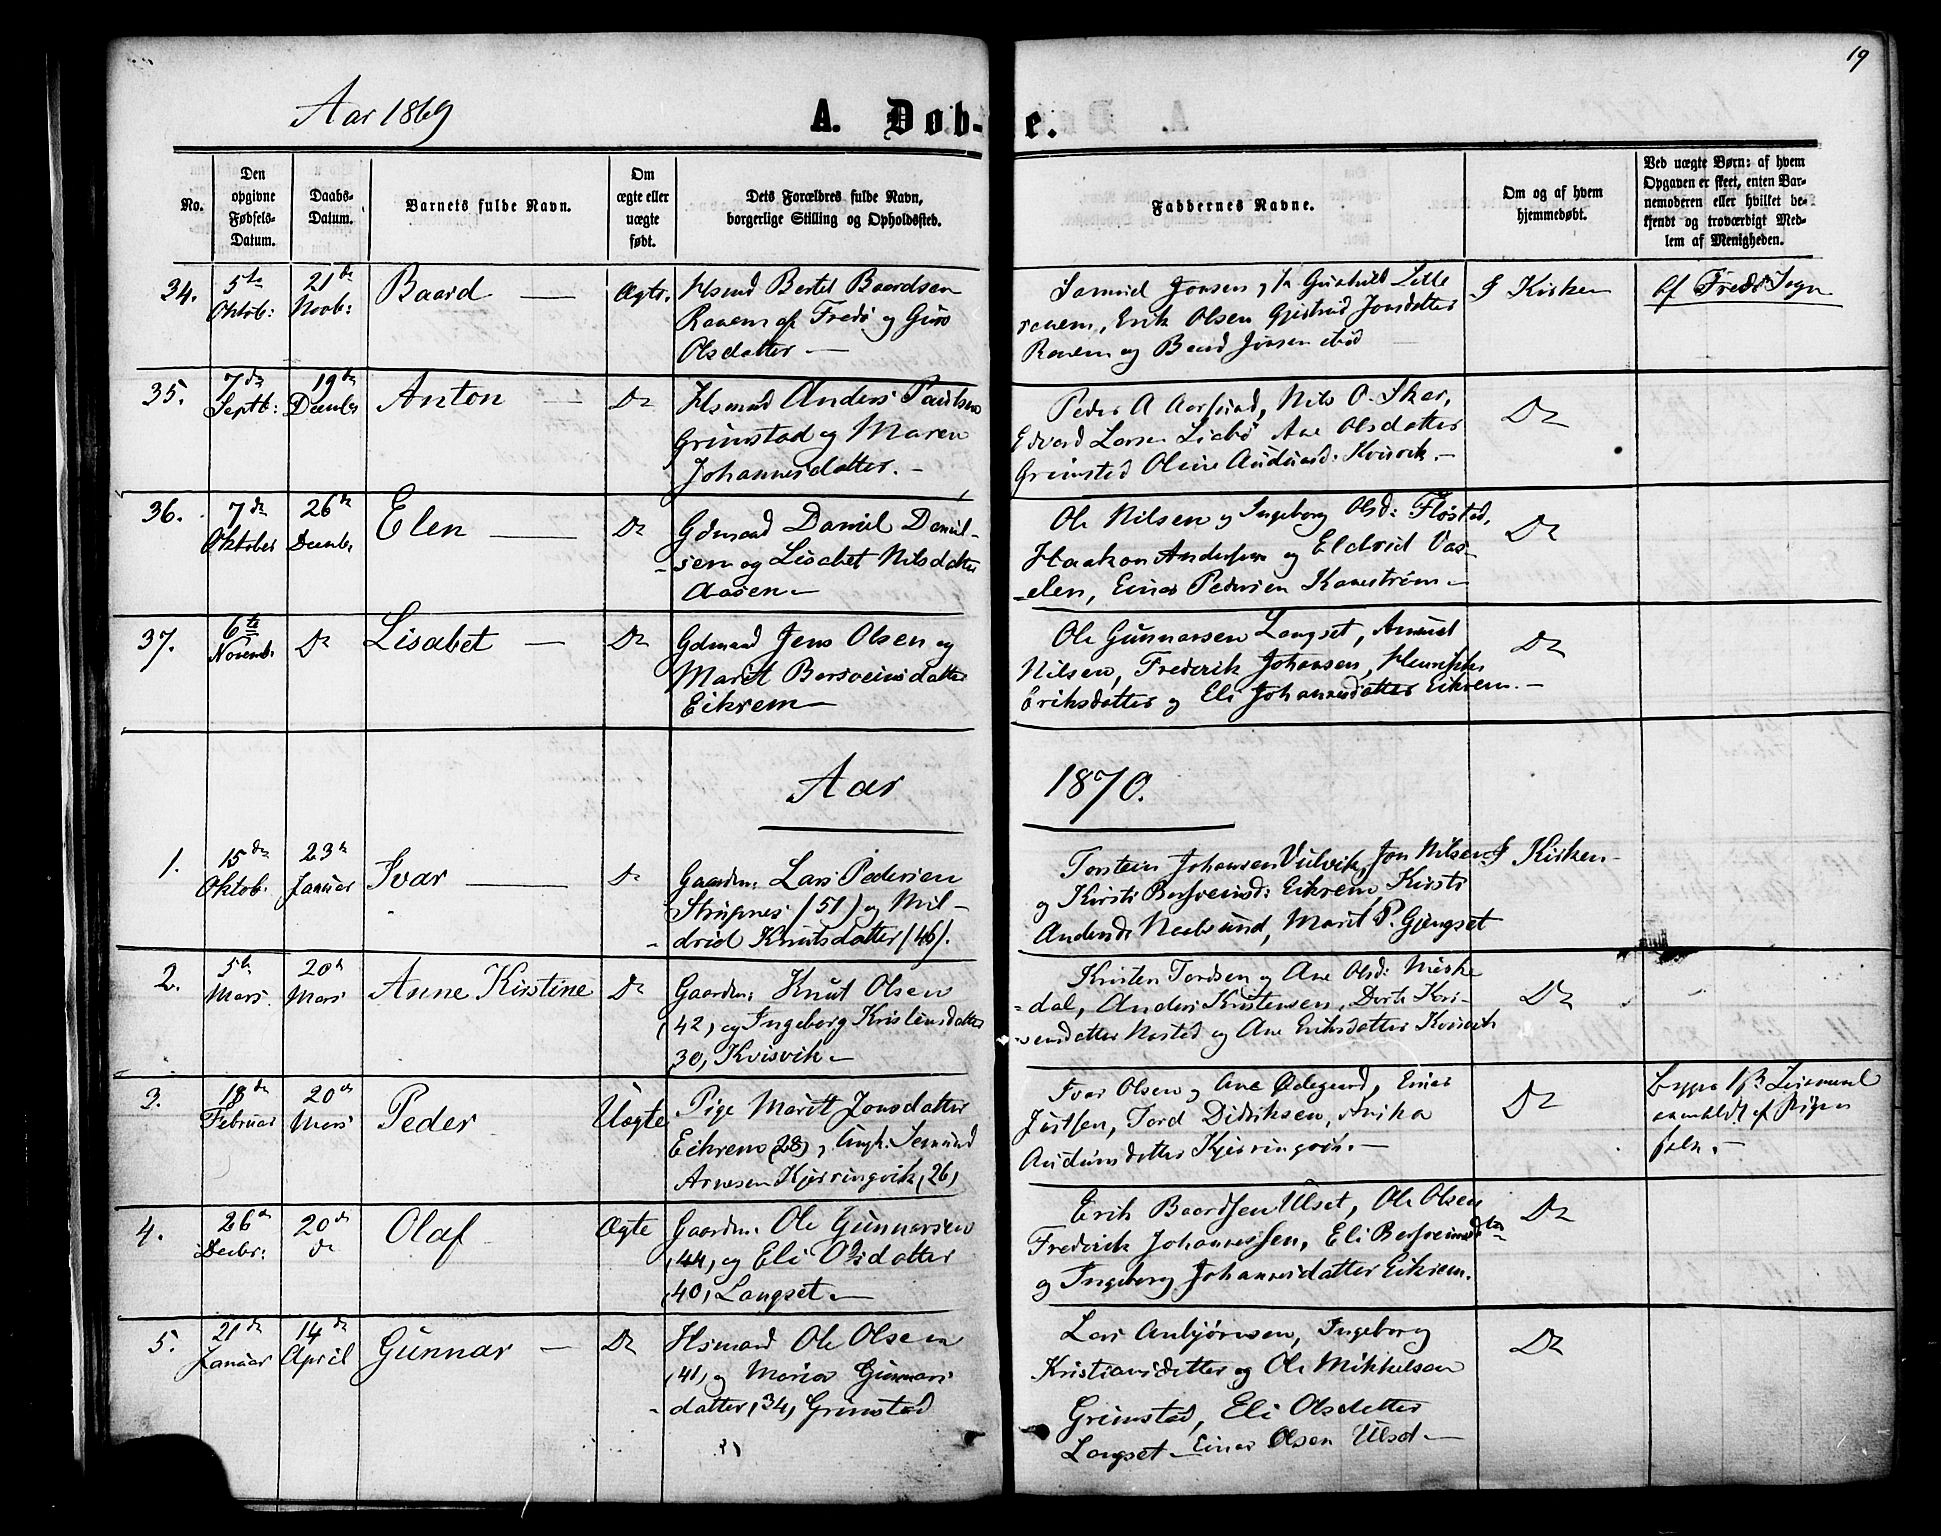 19
Aar 1869
A. Døb-
e.
No.
Den
opgivne
Fødsels-
Datum.
Daabs-
Datum.
Barnets fulde Navn.
Om
ægte eller
uægte
født.
Dets Forældres fulde Navn,
borgerlige Stilling og Opholdssted.
Faddernes Navne.
Om og af hvem
hjemmedøbt.
Ved uægte Børn: af hvem
Opgaven er skeet, enten Bar-
nemoderen eller hvilket be-
kjendt og troværdigt Med-
lem af Menigheden.
34.
5te
Oktob:
21de
Novb:
Baard —
Ægte.
Hsmd Bertel Baardsen
Ranem af Fredø og Guro
Olsdatter —
Samuel Jonsen, Gunhild Lille
ranem, Erik Olsen Gjertrud Jonsdatter
Ranem og Baard Jonsen ibid
I Kirken
Af Fredø Sogn
35.
7de
Septb:
19de
Decmbr
Anton —
Do
Hsmand Anders Paulsen
Grimstad og Maren
Johannesdatter. —
Peder A Aarsund, Nils O. Skar,
Edvard Larsen Liabø Ane Olsdatter
Grimstad Oline Audunsd: Kvisvik. —
Do
36.
7de
Oktober
26de
Decmbr
Elen —
Do
Gdmand Daniel Daniel-
sen og Lisabet Nilsdatter
Aasen —
Ole Nilsen og Ingeborg Olsd: Fløstad,
Haakon Andersen og Eldrid Vaa-
-elen, Einar Pedersen Kanestrøm —
Do
37.
6te
Novemb.
Do
Lisabet —
Do
Gdmand Jens Olsen og
Marit Bersveinsdatter
Eikrem —
Ole Gunnarsen Langset, Amund
Nilsen, Frederik Johansen, Henrikke
Eriksdatter og Eli Johannesdatter Eikrem. —
Do
Aar
1870.
1.
15de
Oktob.
23de
Januar
Ivar —
Do
Gaardm: Lars Pedersen
Strupnes (51) og Mil-
drid Knutsdatter (46).
Torstein Johansen Vulvik, Jon Nilsen
og Kirsti Bersveinsd: Eikrem Kirsti
Andersd: Naalsund, Marit P. Gjengset
I Kirken —
2.
5te
Mars.
20de
Mars
Anne Kirstine
Do
Gaardm: Knut Olsen
(42) og Ingeborg Kristensdatter
30, Kvisvik —
Kristen Tordsen og Ane Olsd: Meske
-dal, Anders Kristensen, Dorte Kri-
-sensdatter Nastad og Ane Eriksdatter Kvisvik
Do
3.
18de
Februar
20de
Mars
Peder
Uægte
Pige Marit Jonsdatter
Eikrem (28), Ungk. Semund
Arnesen Kjerringvik (26)
Ivar Olsen og Ane Ødegaard, Einar
Justsen, Tord Didriksen, Anika
Audunsdatter Kjerringvik. —
Do
anmeldt af Pigen
selv. —
4.
26de
Decbr:
20de
do
Olaf
Ægte
Gaardm: Ole Gunnarsen
(44) og Eli Olsdatter
(40) Langset —
Erik Baardsen Ulset, Ole Olsen
Frederik Johannessen, Eli Bersveinsdtr
og Ingeborg Johannesdatter Eikrem.
Do
5.
21de
Januar
14de
April
Gunnar —
Do
Hsmand Ole Olsen
(41) og Maria Gunnars
datter (34) Grimstad
Lars Anbjørnsen, Ingeborg
Kristiansdatter og Ole Mikkelsen
Grimstad, Eli Olsdatter
Langset — Einar Olsen Ulsd —
Do